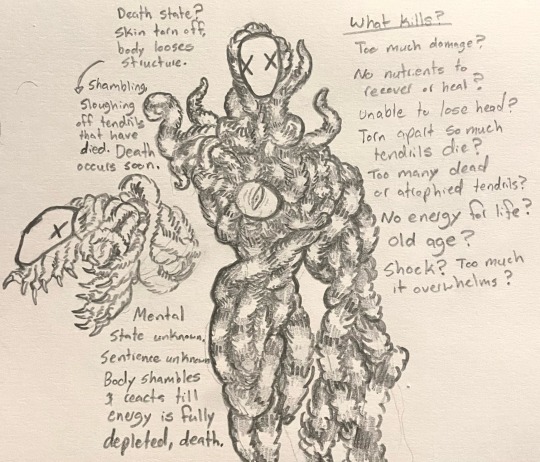 Death state?
Skin torn off,
body looses
structure.
Shambling,
Sloughing
off tendrils
that have
died. Death
occurs soon.
Mental
State unknown.
Sentience unknown
Body shambles
& reacts till
energy is fully
depleted, death.
What kills?
Too much damage?
No nutrients to
recover or heal?
Unable to lose head?
Torn apart so much
tendrils die?
Too many dead
or atrophied tendrils?
No energy for life?
old age?
Shock? Too much
it overwhelms?